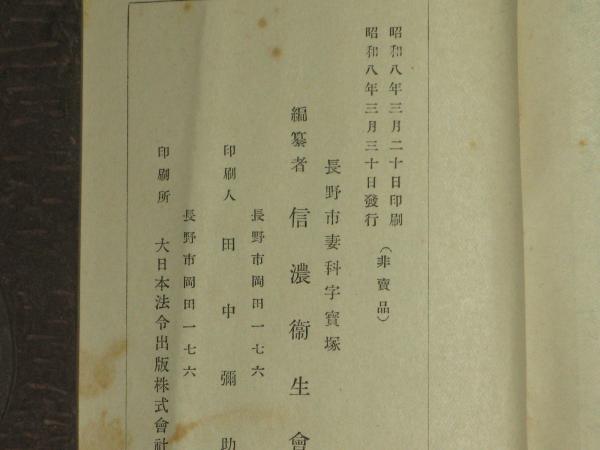 昭和八年三月二十日印刷
昭和八年三月三十日發行
(非賣品)
長野市妻科字寳塚
編纂者 信濃衞生會
長野市岡田一七六
印刷人 田中彌助
長野市岡田一七六
印刷所 大日本法令出版株式會社